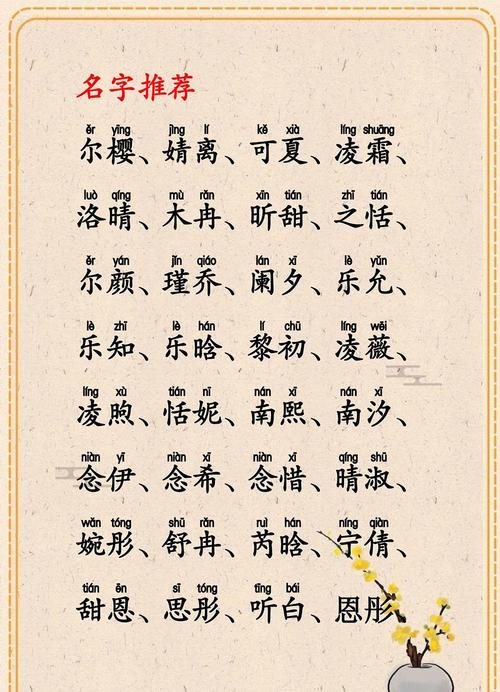 名字推荐
ěr yīng jìng lí kě xià líng shuāng
尔樱、婧离、可夏、凌霜、
luò qíng mù rǎn xīn tián zhī tián
洛晴、木冉、昕甜、之恬、
ěr yán jǐn qiáo lán xī lè yǔn
尔颜、瑾乔、阑夕、乐允、
lè zhī lè hán lí chū líng wēi
乐知、乐晗、黎初、凌薇、
líng xù tián nī nán xī nán xī
凌煦、恬妮、南熙、南汐、
niàn yī niàn xī niàn xī qíng shū
念伊、念希、念惜、晴淑、
wǎn tóng shū rǎn ruì hán níng qiàn
婉彤、舒冉、芮晗、宁倩、
tián ēn sī tóng tīng bái
甜恩、思彤、听白、恩彤